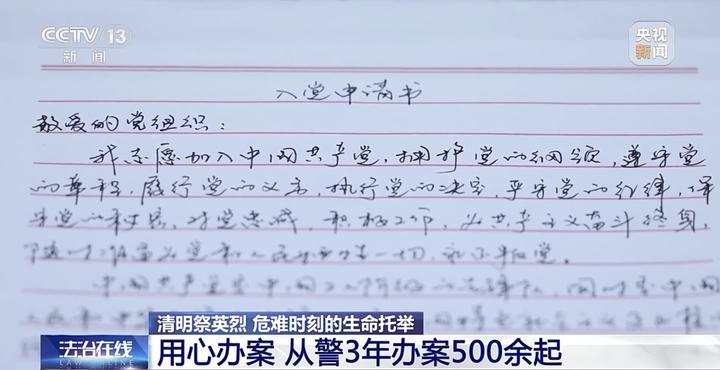 CCTV 13
新闻
央视
新闻
入党申请书
敬爱的党组织：
我志愿加入中国共产党，拥护党的纲领，遵守党
的章程，履行党的义务，执行党的决定，严守党的纪律，保
守党的秘密，对党忠诚，积极工作，为共产主义奋斗终身，
随时准备为党和人民牺牲一切，永不叛党。
清明祭英烈 危难时刻的生命托举
法治在线
LAW ONLINE
用心办案 从警3年办案500余起